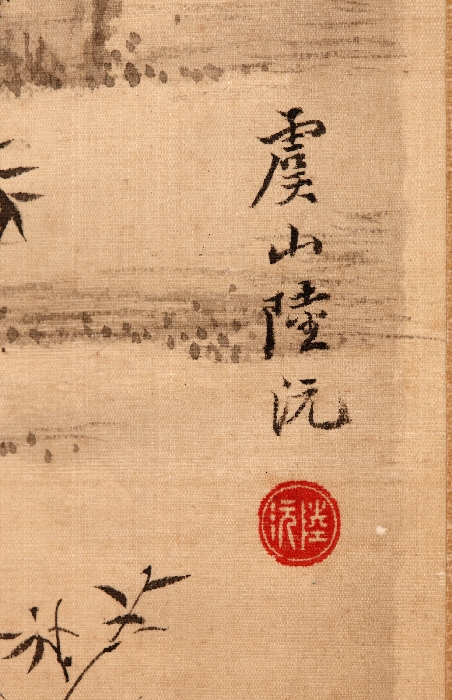 虞山陸沅
陸沅